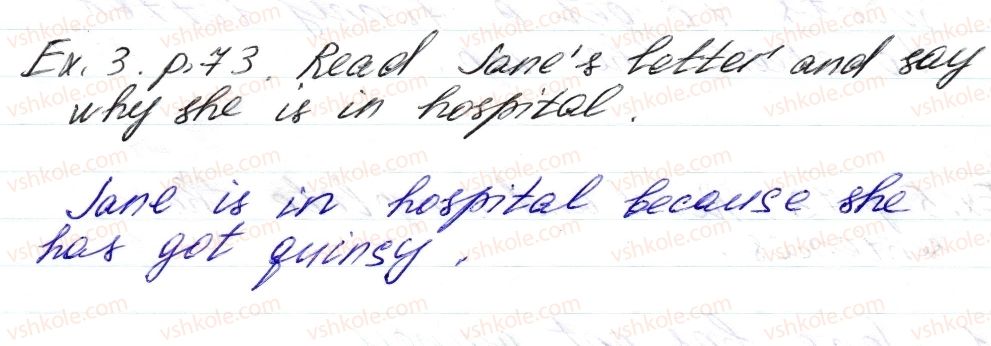 Ex. 3. p. 73. Read Jane's letter and say
why she is in hospital.
Jane is in hospital because she
has got quinsy.